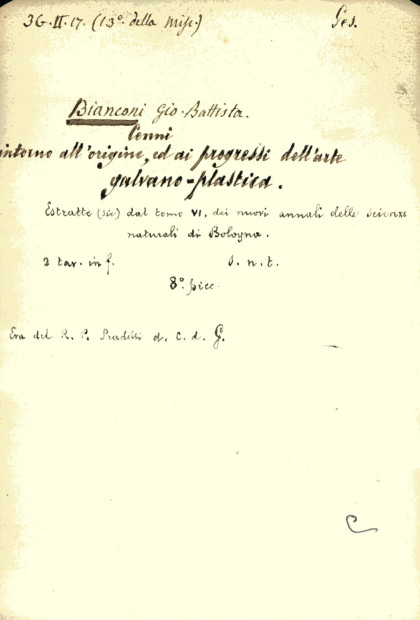 36.II.17. (13º. della Misc.) Ges.
Bianconi Gio. Battista.
Cenni
intorno all'origine, ed ai progressi dell'arte
galvano-plastica.
Estratte (sic) dal tomo VI. dei nuovi annali delle scienze
naturali di Bologna.
2 tav. in f. s. n. t.
8º. picc.
Era del R. P. d. C. d. G.
C